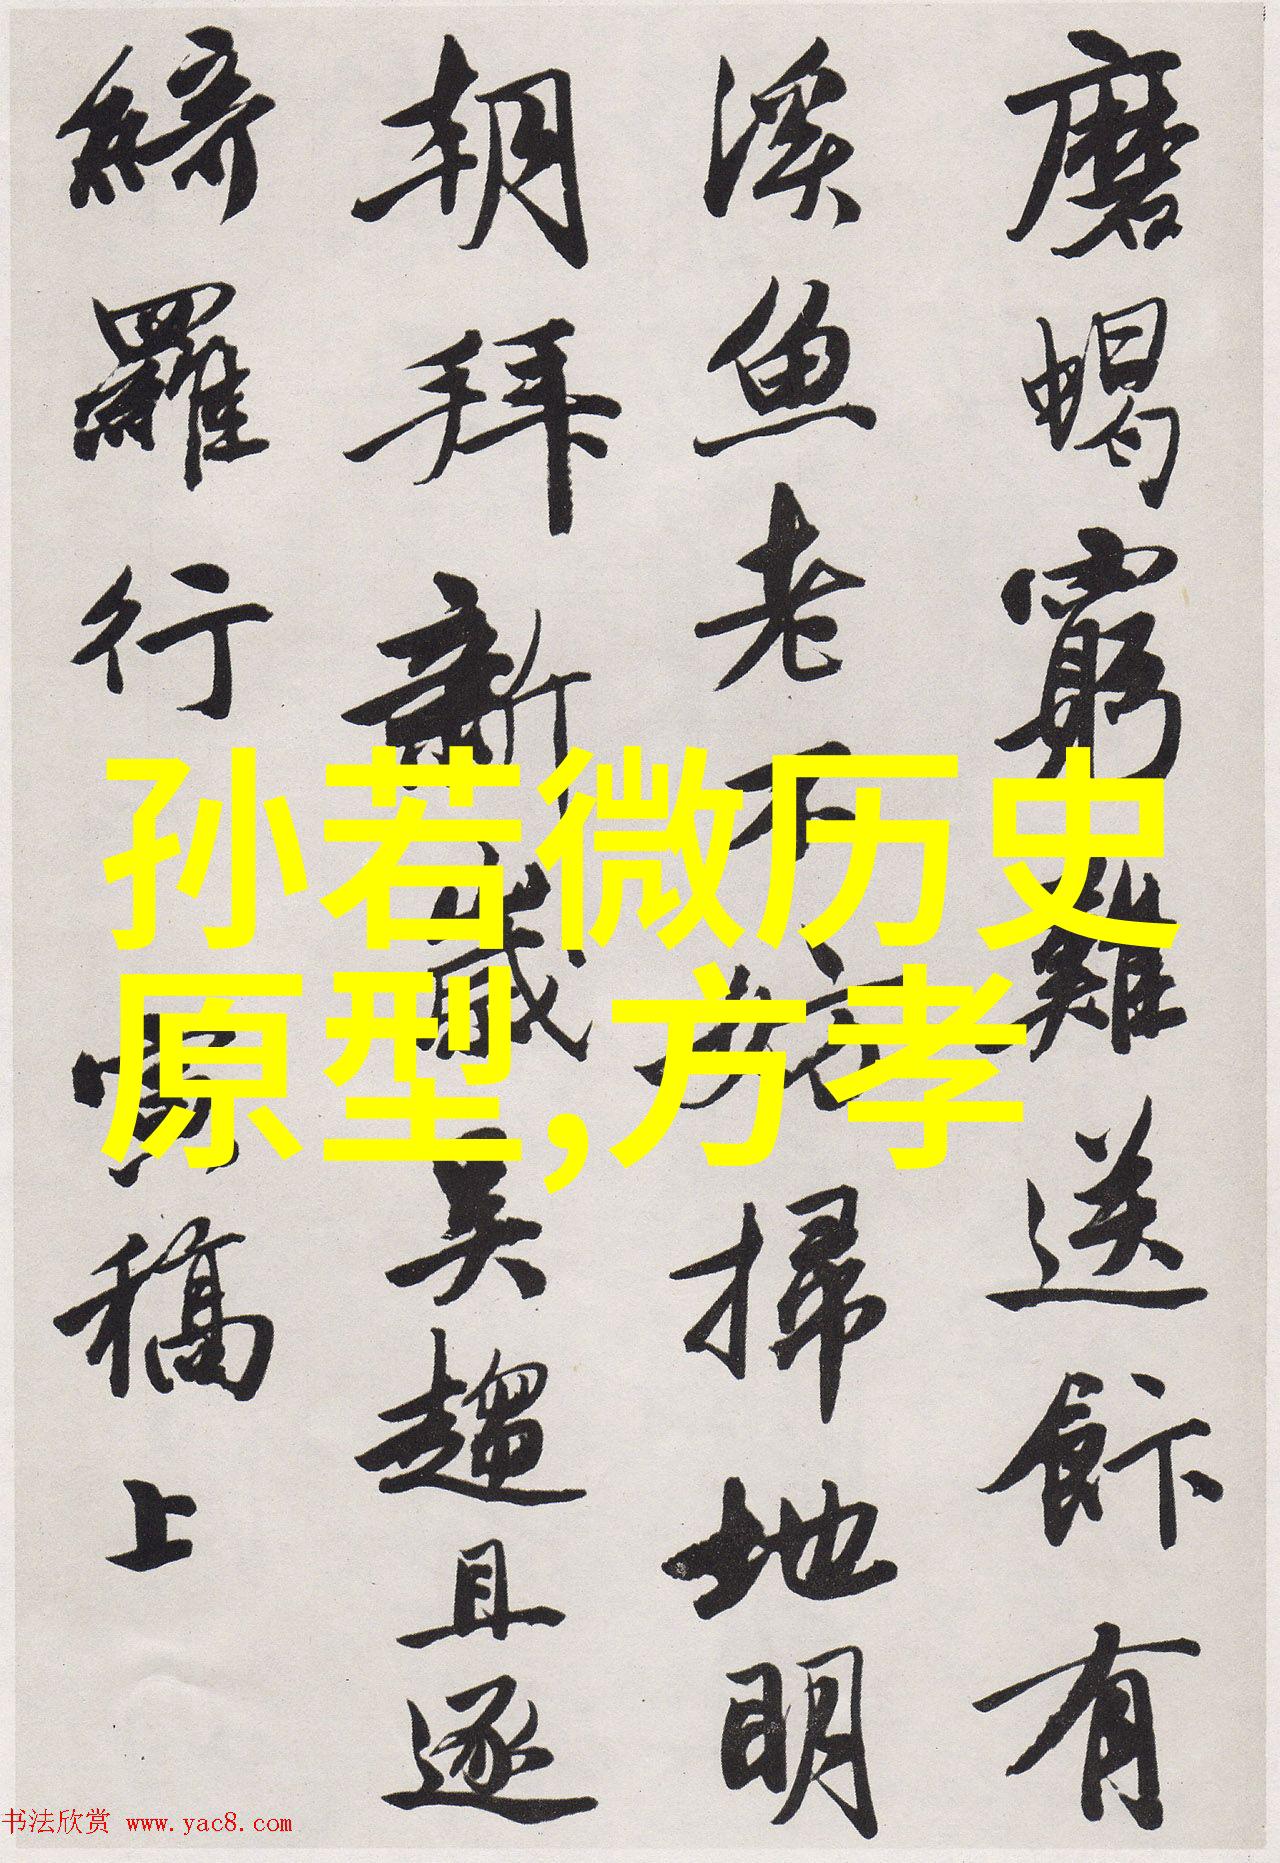 磨蝎窮難送餅有
溪魚老不妨掃地明
朝拜新歲吴趨且逐
綺羅行
稿上
孙若微历史
原型,方孝
书法欣赏 www.yac8.com